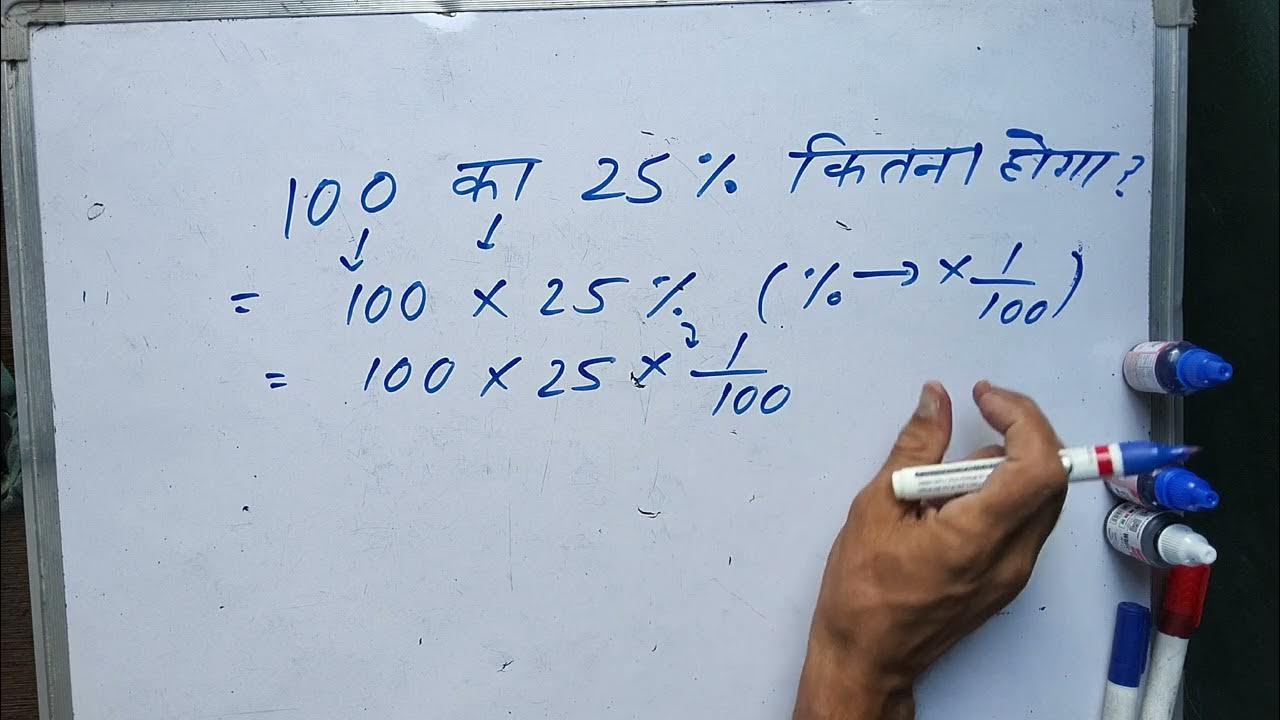 100 का 25% कितना होगा?
= 100 × 25% (% → × 1/100)
= 100 × 25 × 1/100